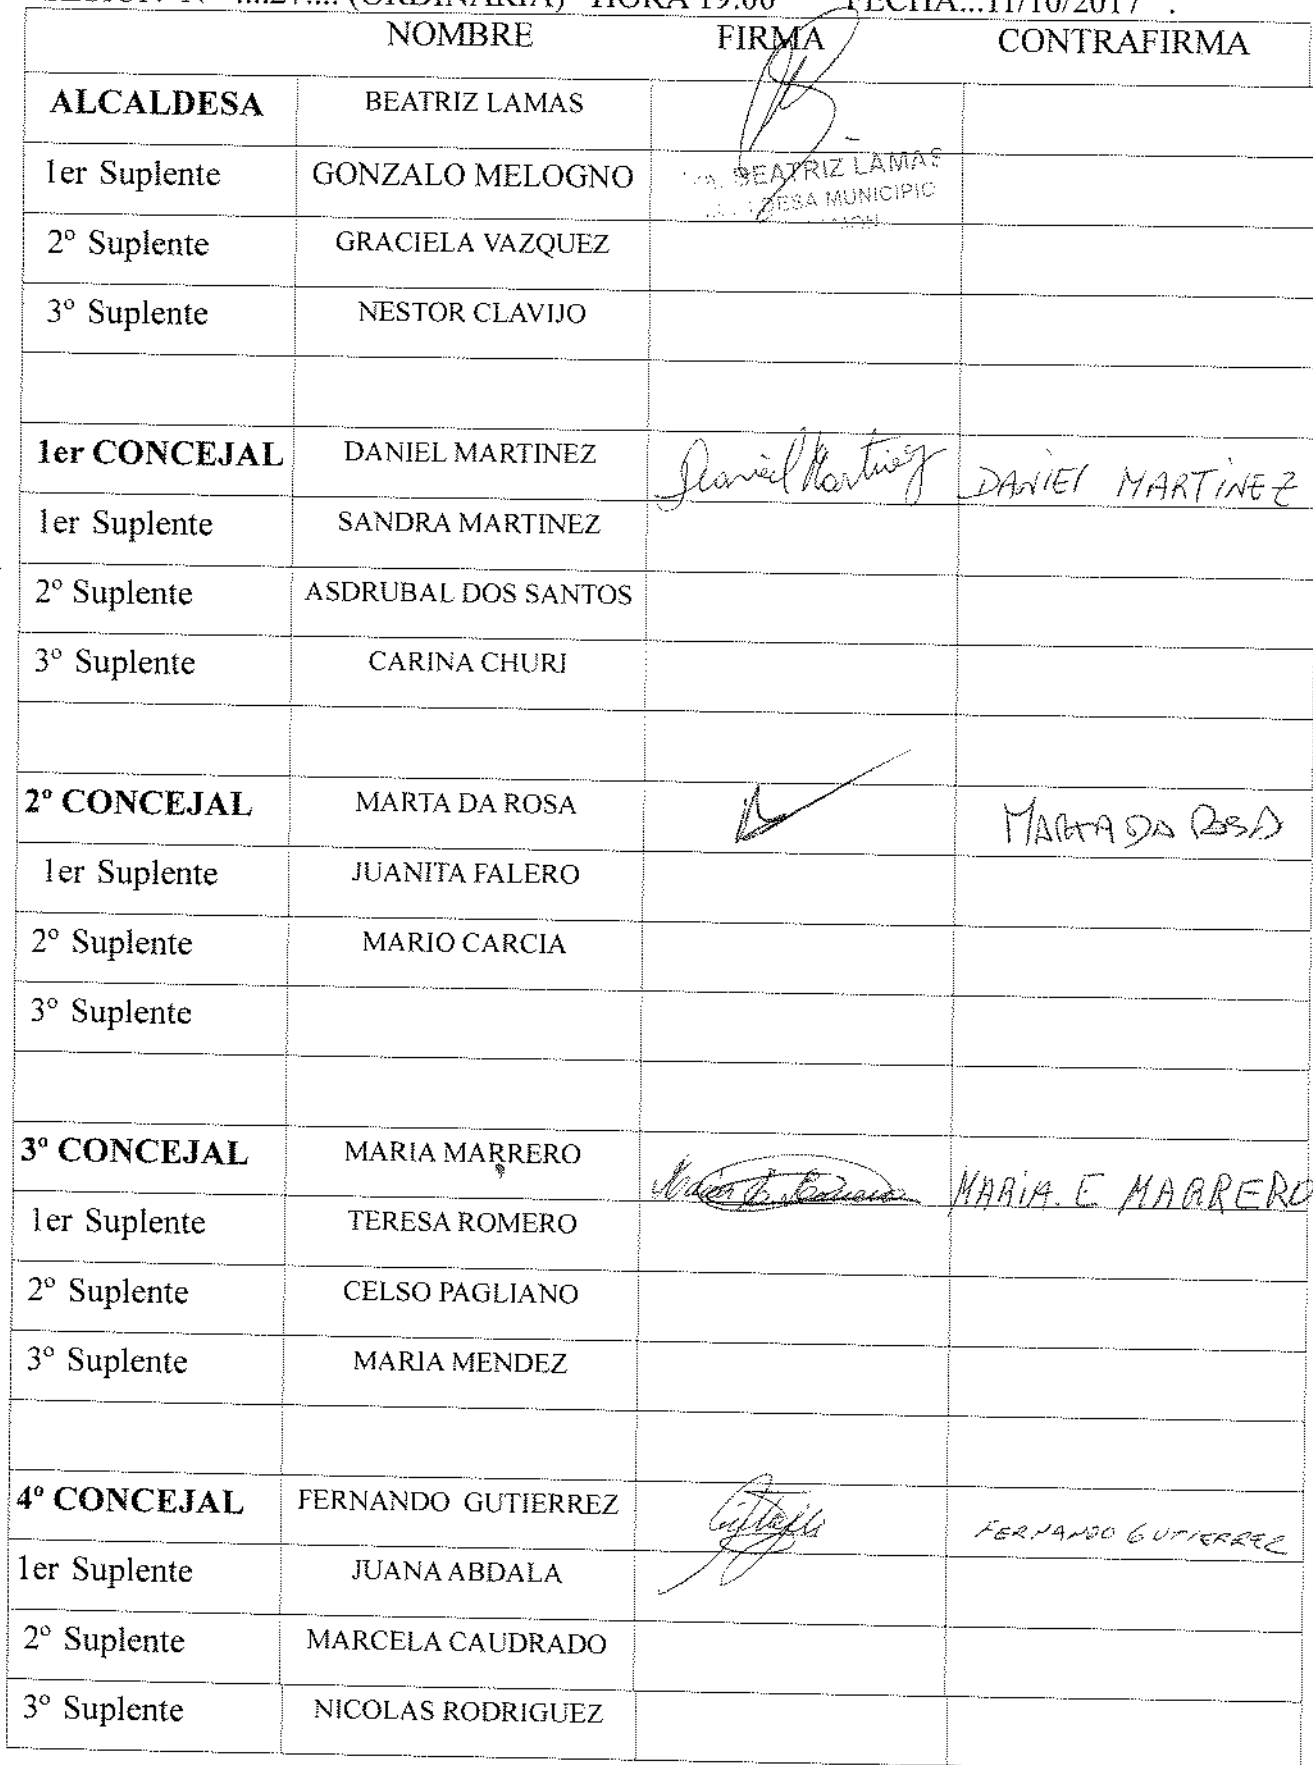 (ORDINARIA) HORA 19:00 FECHA...11/10/2017 .
NOMBRE FIRMA CONTRAFIRMA
ALCALDESA BEATRIZ LAMAS
1er Suplente GONZALO MELOGNO
BEATRIZ LAMAS
MUNICIPIO
2º Suplente GRACIELA VAZQUEZ
3º Suplente NESTOR CLAVIJO
1er CONCEJAL DANIEL MARTINEZ Daniel Martinez DANIEl MARTiNEZ
1er Suplente SANDRA MARTINEZ
2º Suplente ASDRUBAL DOS SANTOS
3º Suplente CARINA CHURI
2º CONCEJAL MARTA DA ROSA MARTA DA ROSA
1er Suplente JUANITA FALERO
2º Suplente MARIO CARCIA
3º Suplente
3º CONCEJAL MARIA MARRERO MARiA. E MARRERO
1er Suplente TERESA ROMERO
2º Suplente CELSO PAGLIANO
3º Suplente MARIA MENDEZ
4º CONCEJAL FERNANDO GUTIERREZ FERNANDO GUTIERREZ
1er Suplente JUANA ABDALA
2º Suplente MARCELA CAUDRADO
3º Suplente NICOLAS RODRIGUEZ